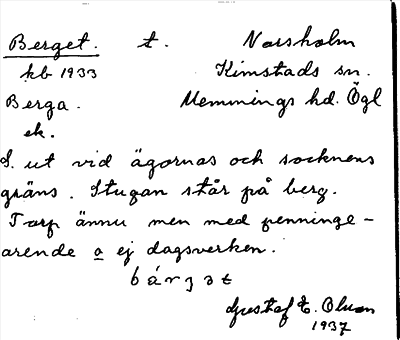 Berget. t. Norsholm
kb 1933 Kimstads sn.
Berga. Memmings hd. Ögl
ek.
S. ut vid ägornas och socknens
gräns. Stugan står på berg.
Torp ännu men med penninge-
arende o ej dagsverken.
bárʒət
Gustaf E. Olson
1937